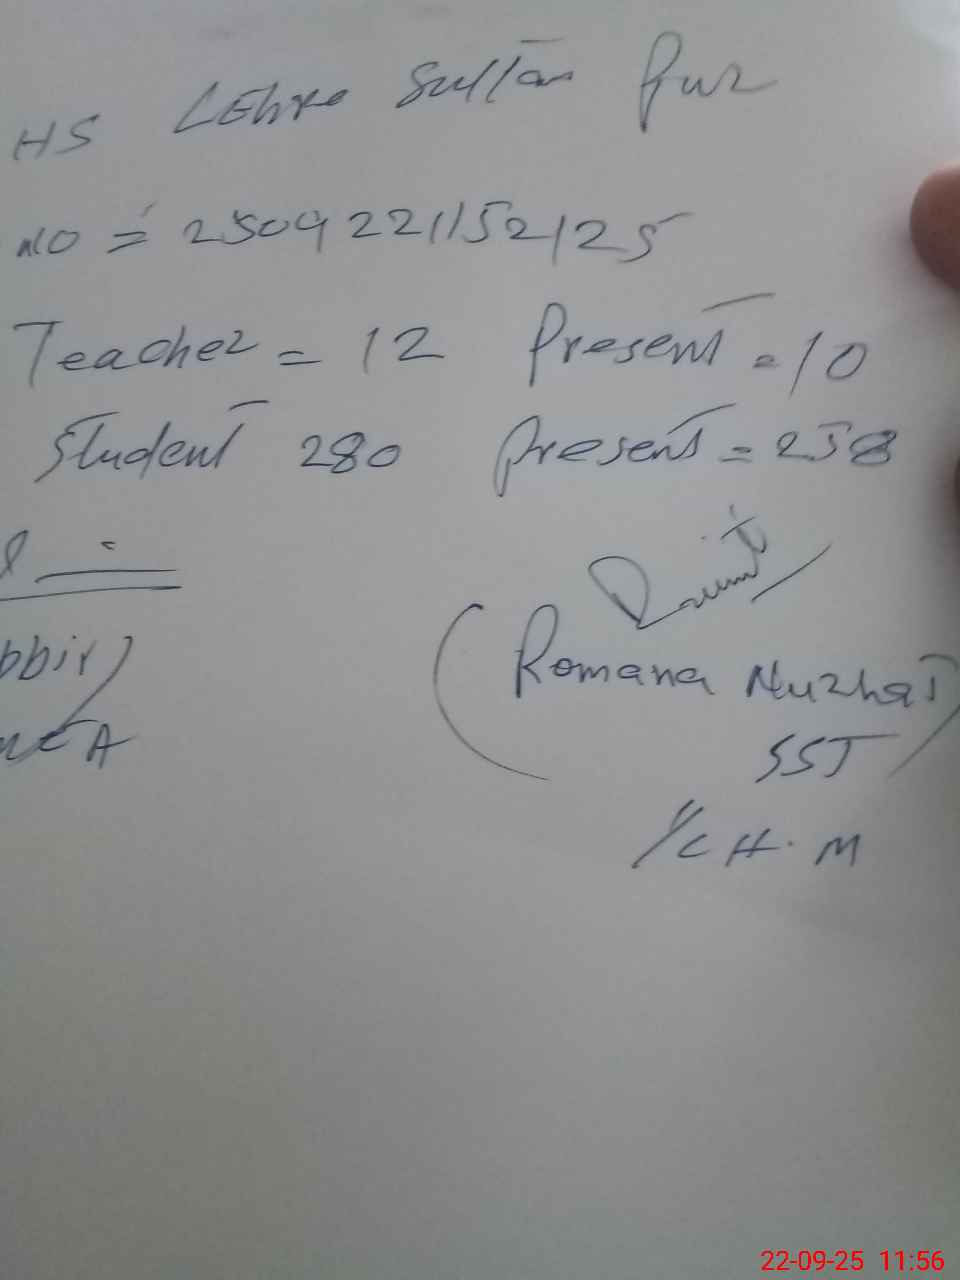 HS Lehre Sultan Pur
NO = 2509221152125
Teacher = 12 Present = 10
Student 280 Present = 258
bbir)
(Romana Nuzhat)
SST
I/C H.M
22-09-25 11:56